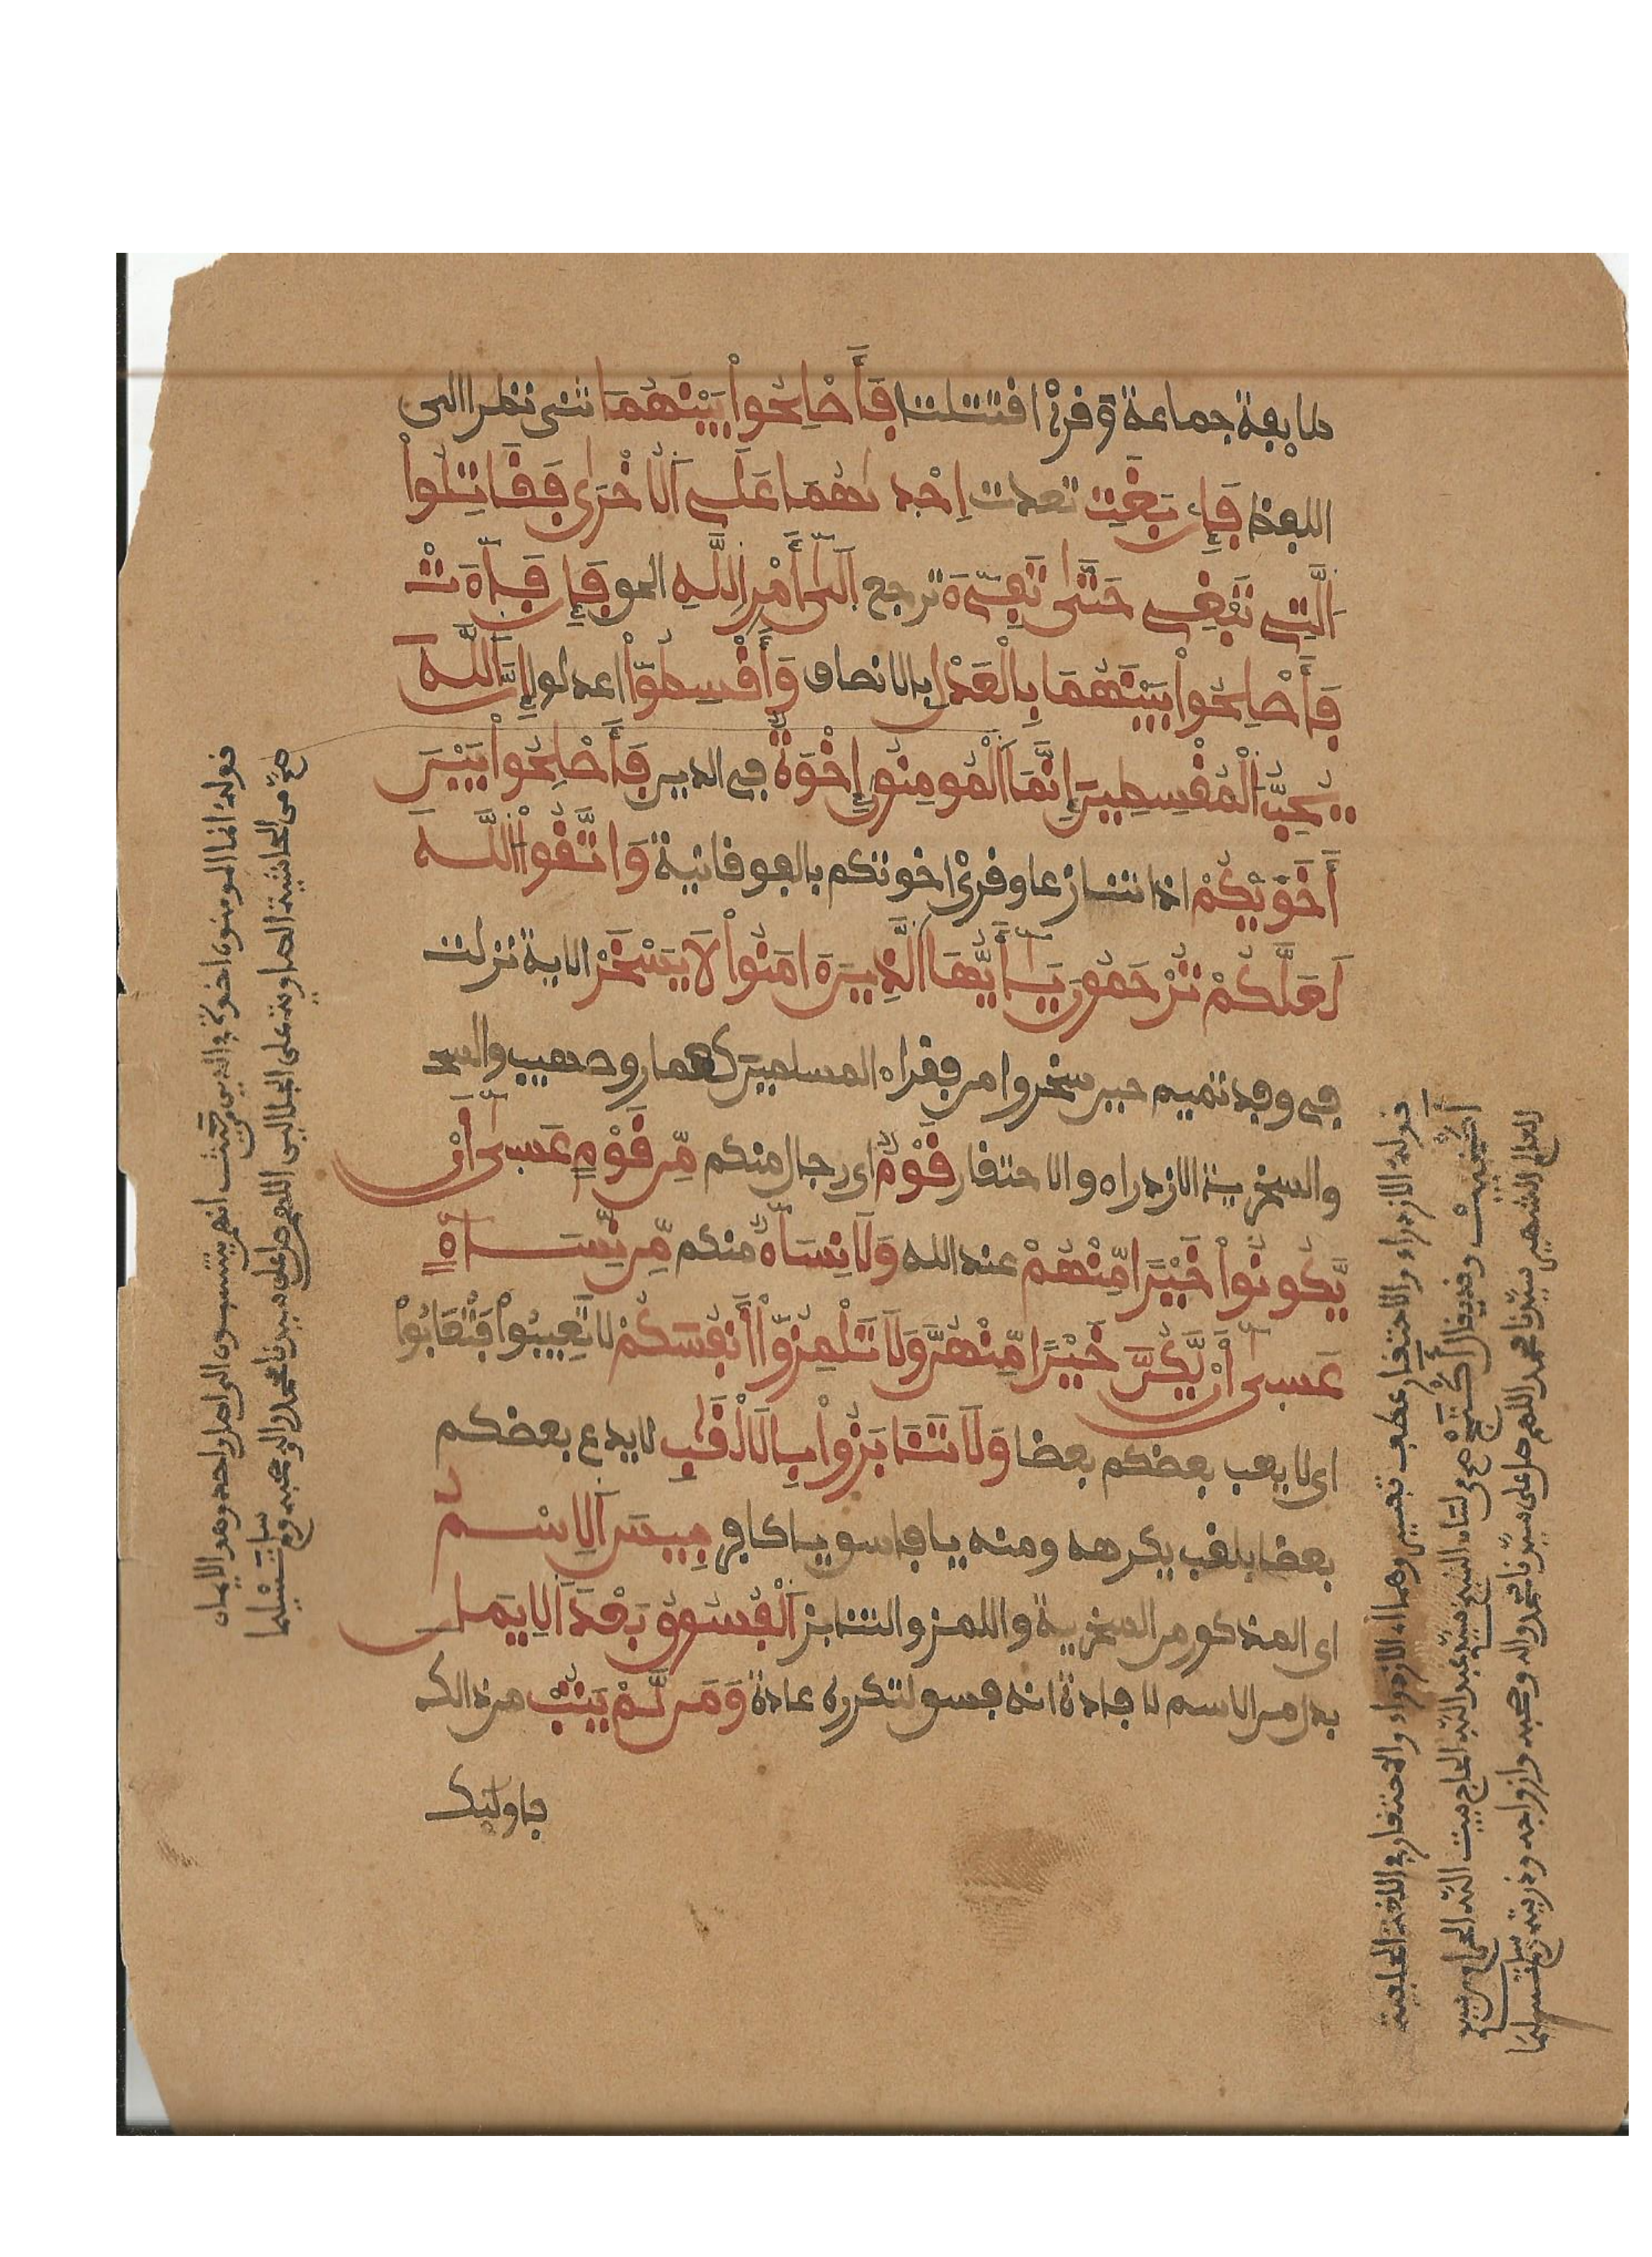 طايفة جماعة وقرئ اقتتلتا فَأَصْلِحُواْ بَيْنَهُمَا ثنى نظرا الى
اللفظ فَإِنۢ بَغَتِ تعدت إِحْدىٰهُمَا عَلَى اَلُاخْرَىٰ فَقَٰتِلُواْ
اَلَّتِے تَبْغِے حَتَّىٰ تَفِےٓءَ ترجع إِلَىٰٓ أَمْرِ اِللَّهِ الحق فَإِن فَآءَتْ
فَأَصْلِحُواْ بَيْنَهُمَا بِالْعَدْلِ بالانصاف وَأَقْسِطُوٓاْ اعدلوا إِنَّ اَللَّهَ
يُحِبُّ اُلْمُقْسِطِينَ إِنَّمَا اَلْمُومِنُونَ إِخْوَةٌ في الدين فَأَصْلِحُواْ بَيْنَ
أَخَوَيْكُمْ اذا تنازعا وقرئ اخوتكم بالفوقانية وَاتَّقُواْ اُللَّهَ
لَعَلَّكُمْ تُرْحَمُونَ يَٰٓأَيُّهَا اَلَّذِينَ ءَامَنُواْ لَا يَسْخَرْ الاية نزلت
في وفد تميم حين سخروا من فقراء المسلمين كعمار وصهيب والسخـ
والسخرية الازدراء والاحتقار قَوْمٌ اى رجال منكم مِّن قَوْمٍ عَسَىٰٓ أَنْ
يَّكُونُواْ خَيْرًا مِّنْهُمْ عند الله وَلَا نِسَآءٌ منكم مِّن نِّسَآءٍ
عَسَىٰٓ أَنْ يَّكُنَّ خَيْرًا مِّنْهُنَّ وَلَا تَلْمِزُوٓاْ أَنفُسَكُمْ لا تَعِيبُواْ فَتُعَابُواْ
اى لا يعب بعضكم بعضا وَلَا تَنَابَزُواْ بِالَالْقَٰبِ لا يدع بعضكم
بعضا بلقب يكرهه ومنه يا فاسق يا كافر بِيسَ اَلِاسْمُ
اى المذكور من السخرية واللمز والتنابز اَلْفُسُوقُ بَعْدَ اَلِايمَٰنِ
بدل من الاسم لافادة انه فسق لتكرره عادة وَمَن لَّمْ يَتُبْ من ذالك
فاولئك
قوله انما المومنون اخوة في الدين من حيث انهم ينتسبون الى اصل واحد وهو الايمان
صح من الحاشية الصاوية على الجلالين اللهم صل على سيدنا محمد واله وصحبه وسلم تسليما
قوله الازدراء والاحتقار عطف تفسير وهما اى الازدراء والاحتقار في اللغة
سيدنا محمد اللهم صل على سيدنا محمد واله وصحبه وازواجه وذريته وسلم تسليما